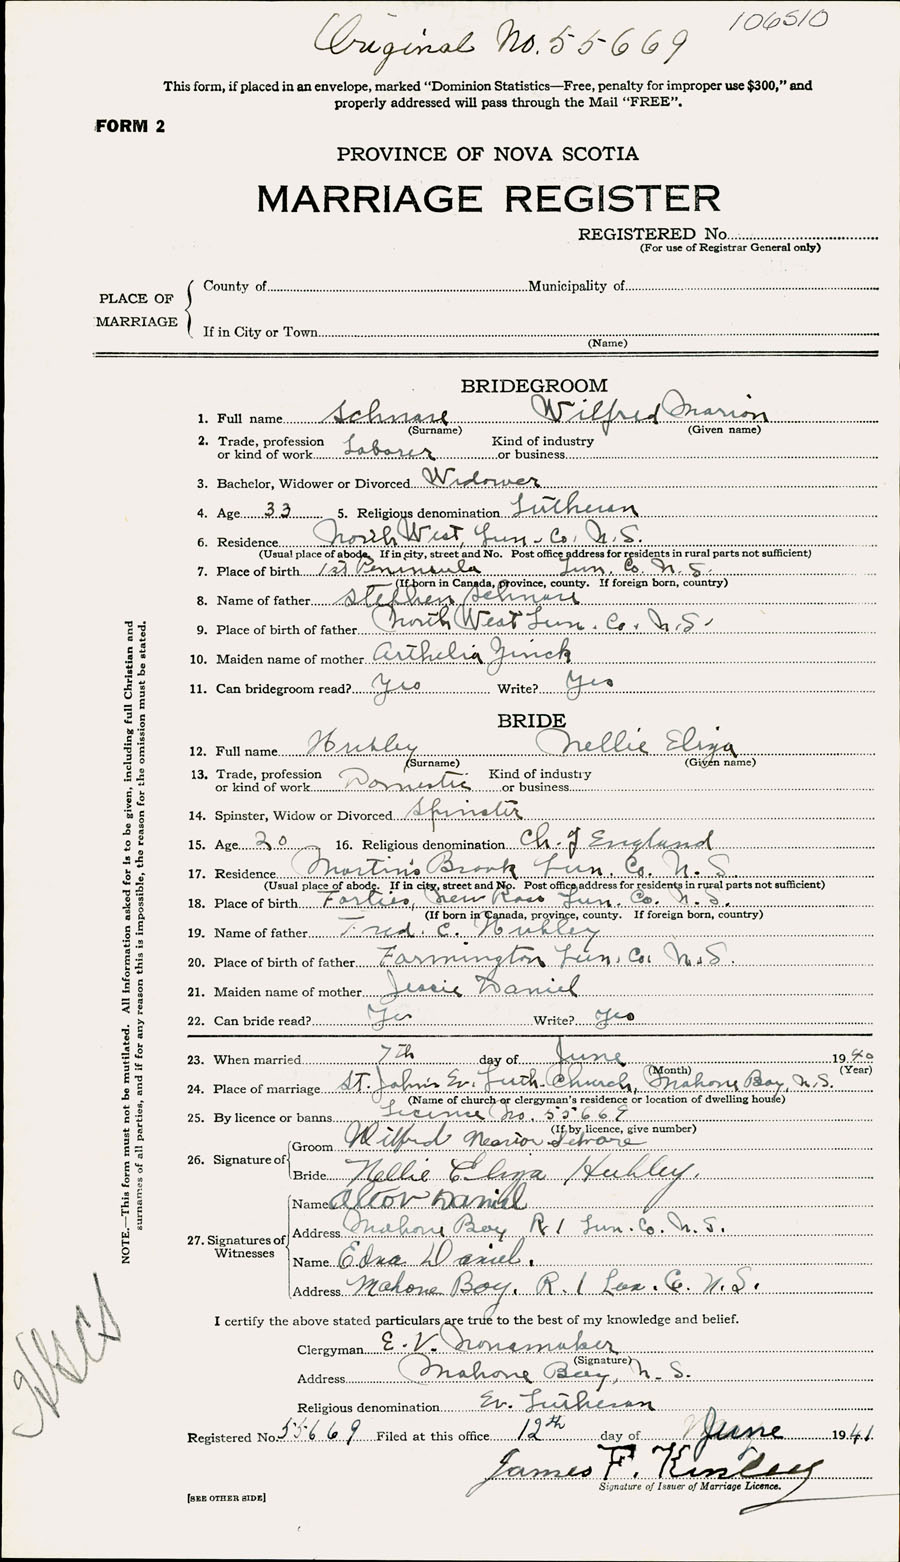 106510
Original No. 55669
This form, if placed in an envelope, marked “Dominion Statistics—Free, penalty for improper use $300,” and
properly addressed will pass through the Mail “FREE”.
FORM 2
PROVINCE OF NOVA SCOTIA
MARRIAGE REGISTER
REGISTERED No.
(For use of Registrar General only)
PLACE OF MARRIAGE
County of Municipality of
If in City or Town
(Name)
BRIDEGROOM
1. Full name Schnare Wilfred Marion
(Surname) (Given name)
2. Trade, profession or kind of work Laborer Kind of industry or business
3. Bachelor, Widower or Divorced Widower
4. Age 33 5. Religious denomination Lutheran
6. Residence North West, Lun. Co. N.S.
(Usual place of abode. If in city, street and No. Post office address for residents in rural parts not sufficient)
7. Place of birth 1st Peninsula Lun. Co. N.S.
(If born in Canada, province, county. If foreign born, country)
8. Name of father Stephen Schnare
9. Place of birth of father North West Lun. Co. N.S.
10. Maiden name of mother Arthelia Zinck
11. Can bridegroom read? Yes Write? Yes
BRIDE
12. Full name Hubley Nellie Eliza
(Surname) (Given name)
13. Trade, profession or kind of work Domestic Kind of industry or business
14. Spinster, Widow or Divorced Spinster
15. Age 20 16. Religious denomination Ch. of England
17. Residence Martin's Brook Lun. Co. N.S.
(Usual place of abode. If in city, street and No. Post office address for residents in rural parts not sufficient)
18. Place of birth Forties, New Ross Lun. Co. N.S.
(If born in Canada, province, county. If foreign born, country)
19. Name of father Fred. C. Hubley
20. Place of birth of father Farmington Lun. Co. N.S.
21. Maiden name of mother Jessie Daniel
22. Can bride read? Yes Write? Yes
23. When married 7th day of June 1940
(Month) (Year)
24. Place of marriage St. John's Ev. Luth. Church, Mahone Bay, N.S.
(Name of church or clergyman's residence or location of dwelling house)
25. By licence or banns Licence No. 55669
(If by licence, give number)
26. Signature of Groom Wilfred Marion Schnare
Bride Nellie Eliza Hubley.
27. Signatures of Witnesses
Name Daniel
Address Mahone Bay R 1 Lun. Co. N.S.
Name Edna Daniel.
Address Mahone Bay, R. 1 Lun. Co. N.S.
I certify the above stated particulars are true to the best of my knowledge and belief.
Clergyman E. V. Nonamaker
(Signature)
Address Mahone Bay, N.S.
Religious denomination Ev. Lutheran
Registered No. 55669 Filed at this office 12th day of June 1941
James F. Kinley
Signature of Issuer of Marriage Licence.
[SEE OTHER SIDE]
NOTE.—This form must not be mutilated. All information asked for is to be given, including full Christian and
surnames of all parties, and if for any reason this is impossible, the reason for the omission must be stated.